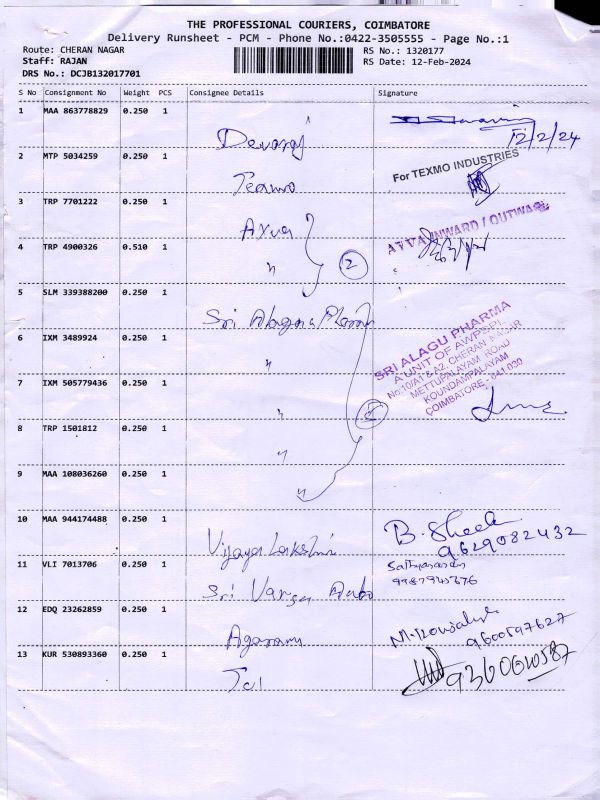 THE PROFESSIONAL COURIERS, COIMBATORE
Delivery Runsheet - PCM - Phone No.:0422-3505555 - Page No.:1
Route: CHERAN NAGAR
RS No.: 1320177
Staff: RAJAN
RS Date: 12-Feb-2024
DRS No.: DCJB132017701
S No Consignment No Weight PCS Consignee Details Signature
1 MAA 863778829 0.250 1
Devaraj
12/2/24
2 MTP 5034259 0.250 1
For TEXMO INDUSTRIES
3 TRP 7701222 0.250 1
INWARD / OUTWARD
4 TRP 4900326 0.510 1
"
2
5 SLM 339388200 0.250 1
Sri
SRI ALAGU PHARMA
A UNIT OF AWPSPL
No:10/A1 & A2, CHERAN NAGAR
METTUPALAYAM ROAD
KOUNDAMPALAYAM
COIMBATORE - 641 030
6 IXM 3489924 0.250 1
"
7 IXM 505779436 0.250 1
"
8 TRP 1501812 0.250 1
"
9 MAA 108036260 0.250 1
"
10 MAA 944174488 0.250 1
Vijaya Lakshmi
B. Sheela
9629082432
11 VLI 7013706 0.250 1
Sri Varsa Auto
12 EDQ 23262859 0.250 1
Agaram
9600597627
13 KUR 530893360 0.250 1